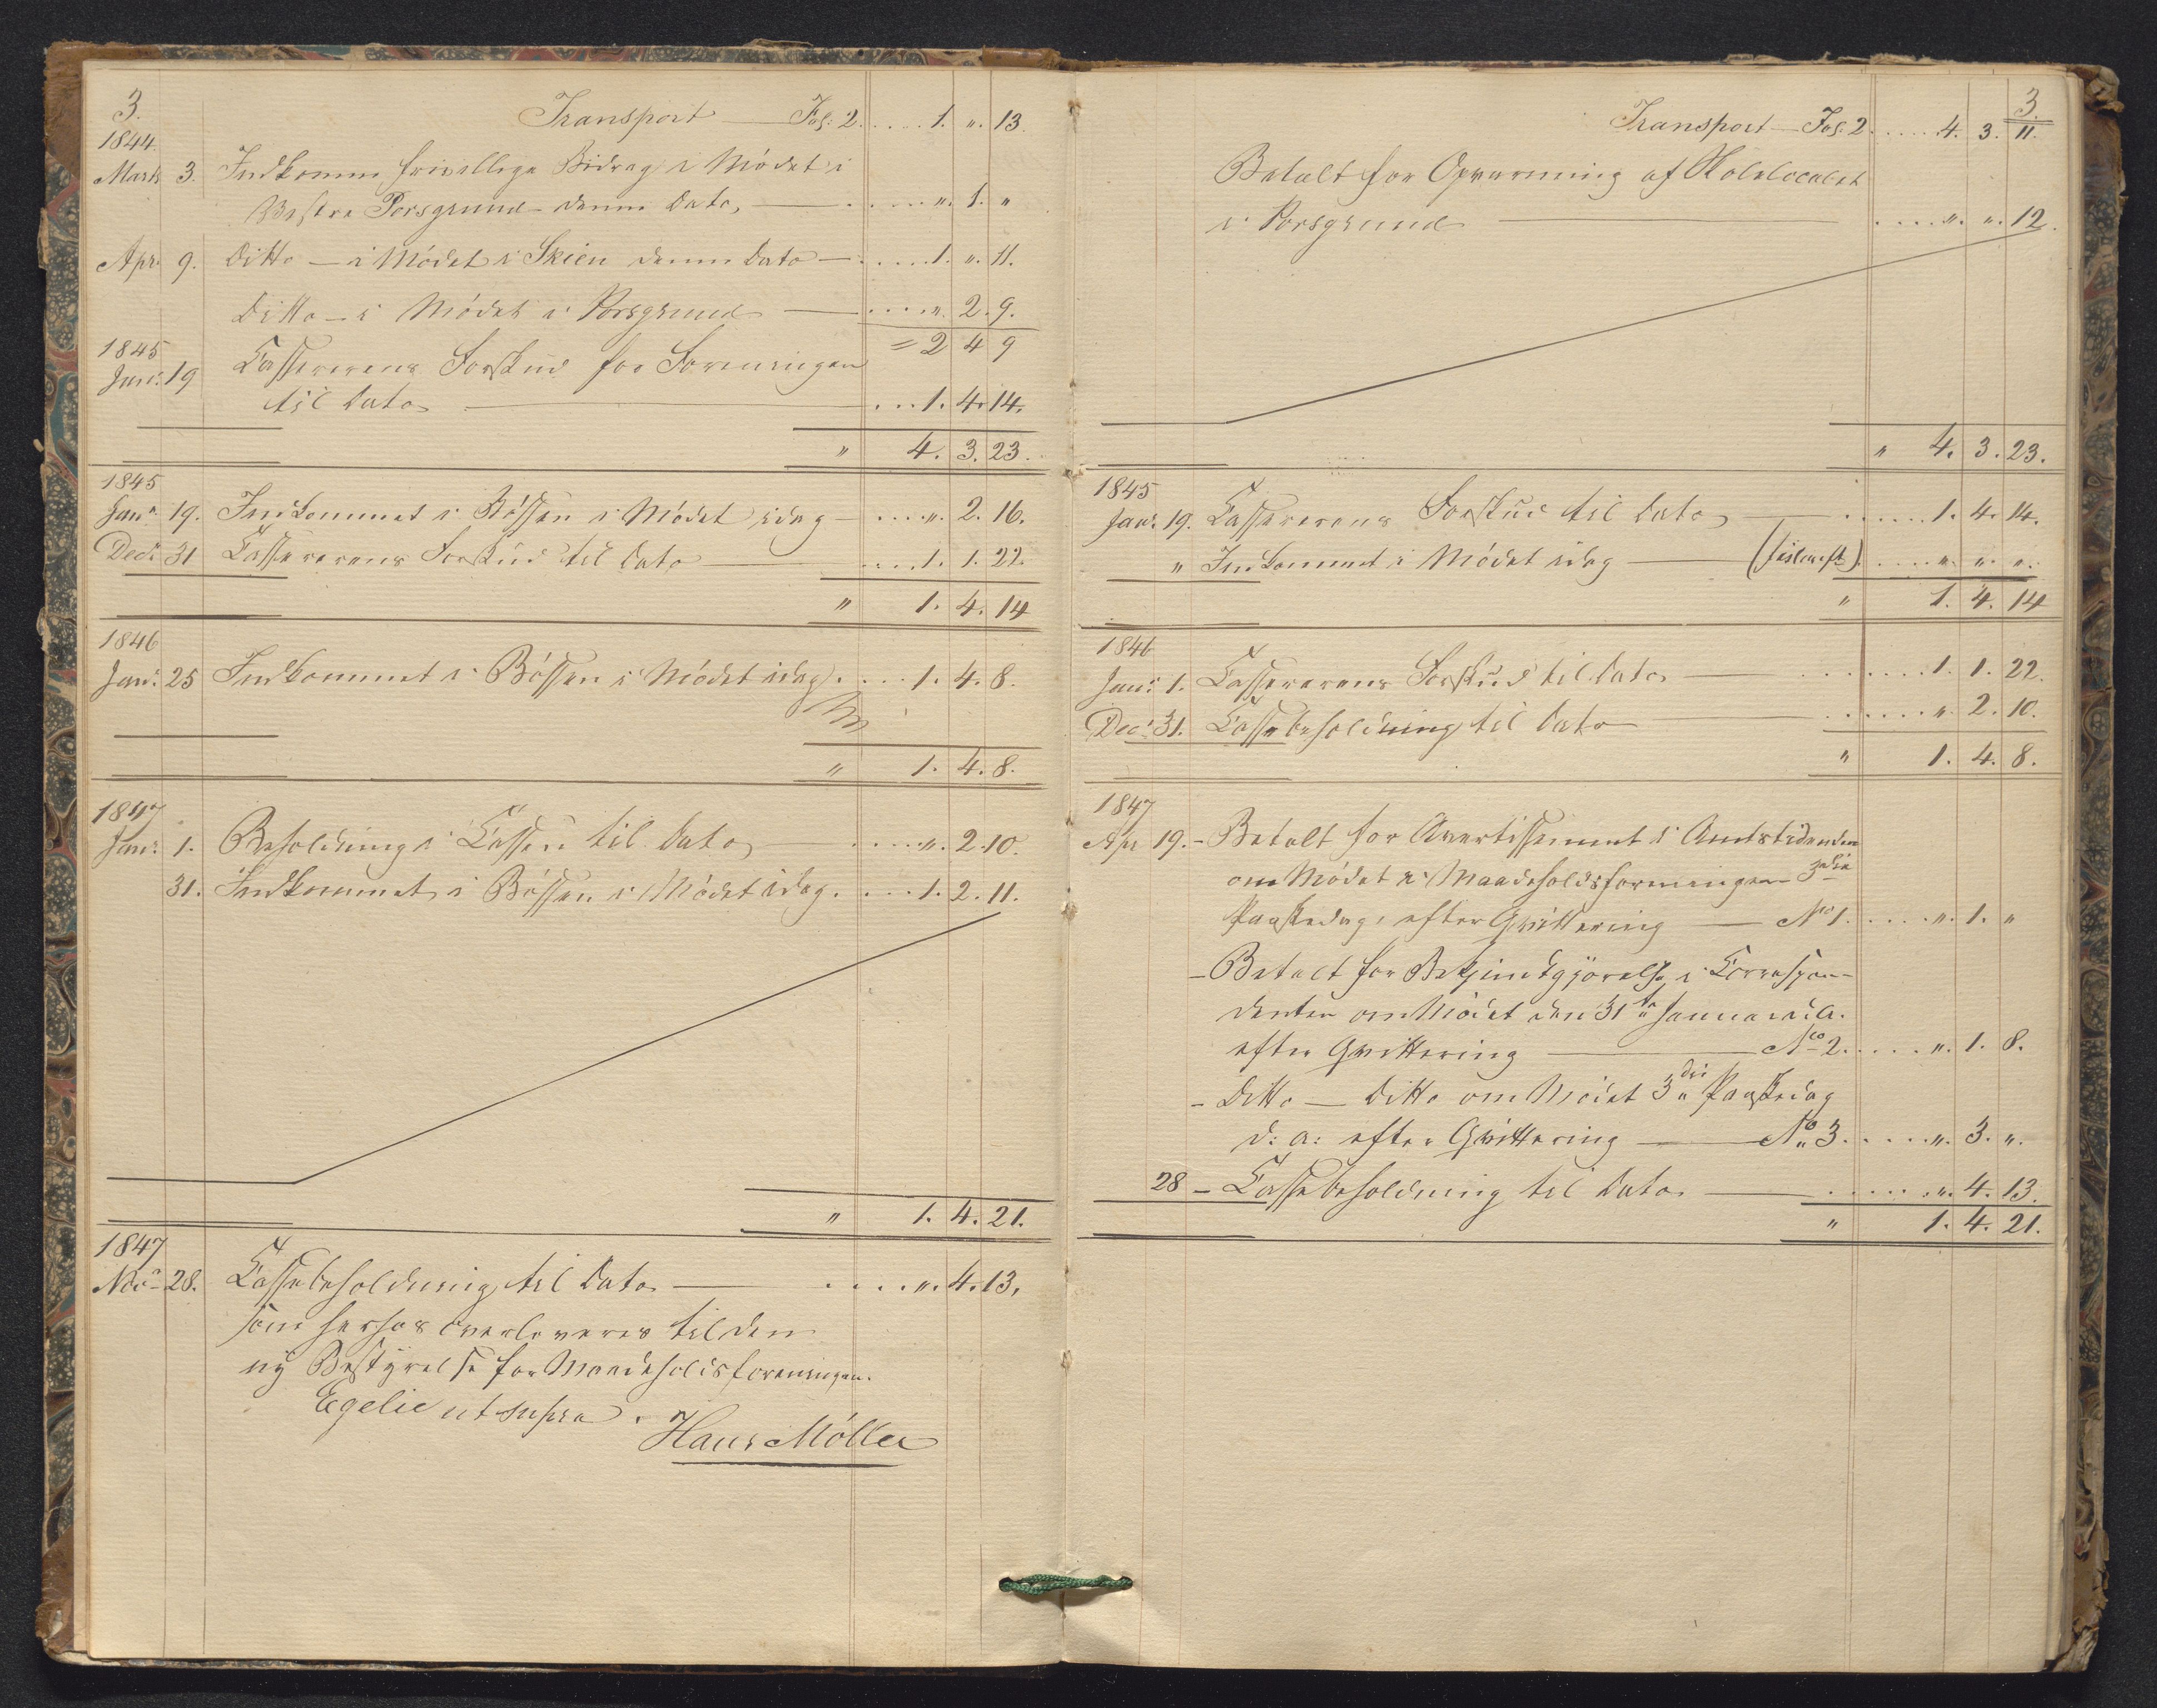 3.
Transport — Fol: 2 . . . . . 1. ". 13.
1844.
Marts 3. Indkomne frivillige Bidrag i Mödet i
Vestre Porsgrund denne Dato, — . . . . . ". 1. "
Apr. 9. Ditto — i Mödet i Skien denne Dato — . . . . . 1. ". 11.
Ditto — i Mödet i Porsgrund — . . . . ". 2. 9.
= 2 4 9
1845
Janr: 19 Cassererens Forskud for Foreningen
til Dato — . . . 1. 4. 14.
" 4. 3. 23.
1845
Janr. 19. Indkommet i Bössen i Mödet idag — . . . . ". 2. 16.
Decr 31 Cassererens Forskud til Dato — . . . . 1. 1. 22.
" 1. 4. 14
1846
Janr. 25 Indkommet i Bössen i Mödet idag. . . . 1. 4. 8.
" 1. 4. 8.
1847
Janr. 1. Beholdning i Cassen til Dato, . . . . ". 2. 10.
31. Indkommet i Bössen i Mödet idag. . . . 1. 2. 11.
" 1. 4. 21.
1847
Nov 28. Cassebeholdning til Dato — . . . . ". 4. 13.
som herhos overleveres til den
ny Bestyrelse for Maadeholdsforeningen.
Egelie ut supra.
Hans Möller
3.
Transport — Fol. 2 . . . . . 4. 3. 11.
Betalt for Opvarmning af Skolelocalet
i Porsgrund — . . . . ". ". 12.
" 4. 3. 23.
1845
Janr. 19. Cassererens Forskud til Dato — . . . . . 1. 4. 14.
" Indkommet i Mödet idag — . . . . ". ". ".
" 1. 4. 14
1846
Janr. 1. Cassererens Forskud til Dato — . . . . . 1. 1. 22.
Decr 31. Cassebeholdning til Dato . . . . . ". 2. 10.
" 1. 4. 8.
1847
Apr 19. - Betalt for Avertissement i Amtstidenden
om Mödet i Maadeholdsforeningen 3die
Paaskedag, efter Qvittering — No 1. . . . . ". 1. "
- Betalt for Bekjendtgjörelse i Correspon-
denten om Mödet den 31te Januar d. A.
efter Qvittering — No 2. . . . . ". 1. 8.
- Ditto — Ditto om Mödet 3die Paaskedag
d: a: efter Qvittering — No 3. . . . . ". 3. ".
28 - Cassebeholdning til Dato. — . . . . . ". 4. 13.
" 1. 4. 21.